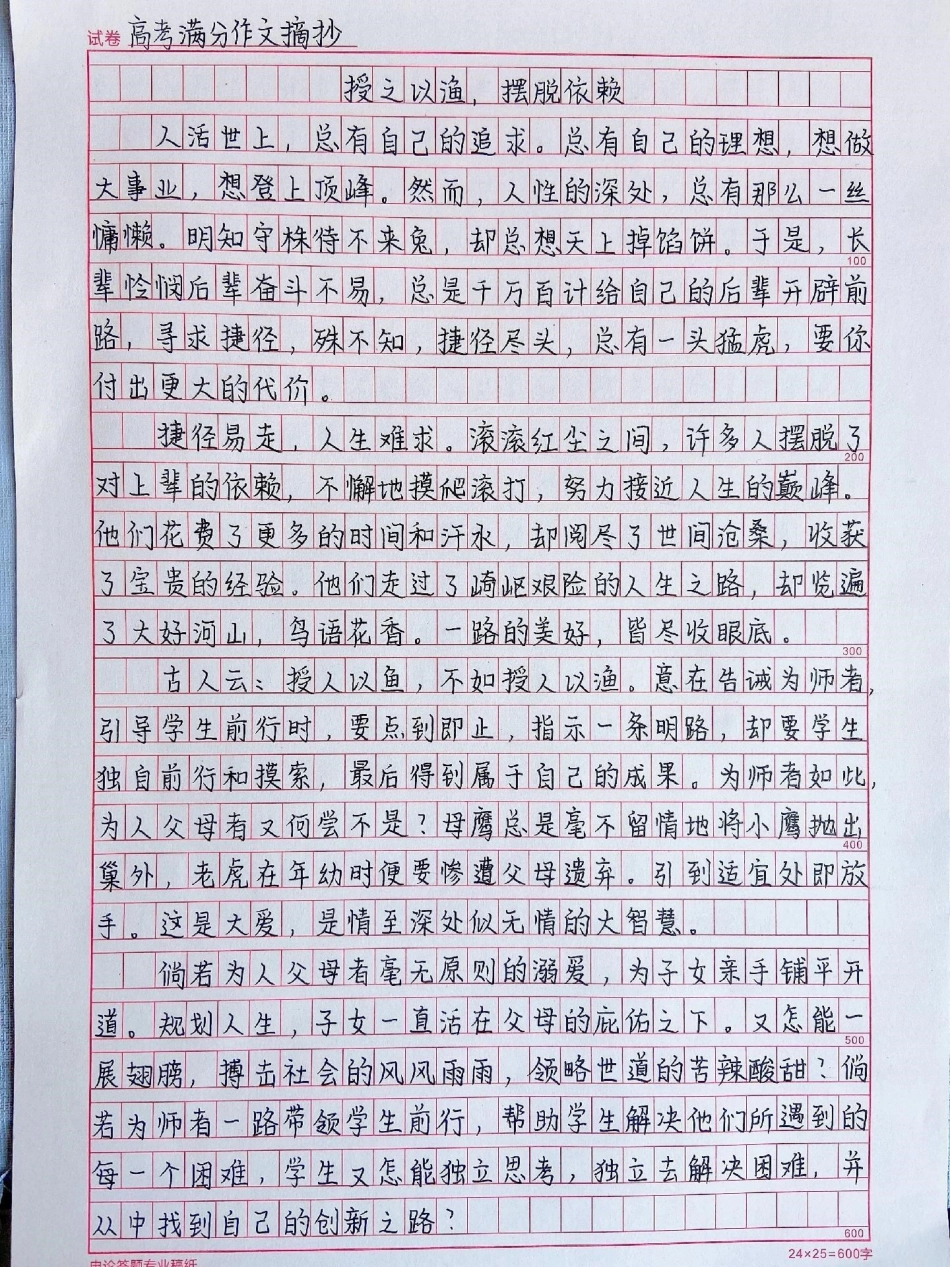 试卷 高考满分作文摘抄
授之以渔，摆脱依赖
人活世上，总有自己的追求。总有自己的理想，想做
大事业，想登上顶峰。然而，人性的深处，总有那么一丝
慵懒。明知守株待不来兔，却总想天上掉馅饼。于是，长
100
辈怜悯后辈奋斗不易，总是千万百计给自己的后辈开辟前
路，寻求捷径，殊不知，捷径尽头，总有一头猛虎，要你
付出更大的代价。
捷径易走，人生难求。滚滚红尘之间，许多人摆脱了
200
对上辈的依赖，不懈地摸爬滚打，努力接近人生的巅峰。
他们花费了更多的时间和汗水，却阅尽了世间沧桑，收获
了宝贵的经验。他们走过了崎岖艰险的人生之路，却览遍
了大好河山，鸟语花香。一路的美好，皆尽收眼底。
300
古人云：授人以鱼，不如授人以渔。意在告诫为师者，
引导学生前行时，要点到即止，指示一条明路，却要学生
独自前行和摸索，最后得到属于自己的成果。为师者如此，
为人父母者又何尝不是？母鹰总是毫不留情地将小鹰抛出
400
巢外，老虎在年幼时便要惨遭父母遗弃。引到适宜处即放
手。这是大爱，是情至深处似无情的大智慧。
倘若为人父母者毫无原则的溺爱，为子女亲手铺平开
道。规划人生，子女一直活在父母的庇佑之下。又怎能一
500
展翅膀，搏击社会的风风雨雨，领略世道的苦辣酸甜？倘
若为师者一路带领学生前行，帮助学生解决他们所遇到的
每一个困难，学生又怎能独立思考，独立去解决困难，并
从中找到自己的创新之路？
600
申论答题专业稿纸
24×25=600字